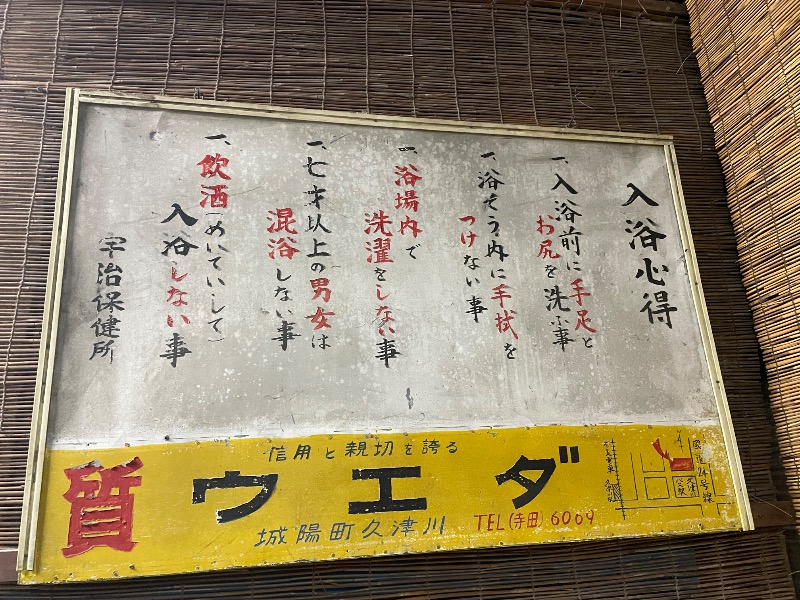 入浴心得
一、入浴前に手足と
お尻を洗ふ事
一、浴そう内に手拭を
つけない事
一、浴場内で
洗濯をしない事
一、七才以上の男女は
混浴しない事
一、飲酒(めいていして)
入浴しない事
宇治保健所
信用と親切を誇る
質 ウエダ
城陽町久津川 TEL(寺田)6069
国道24号線